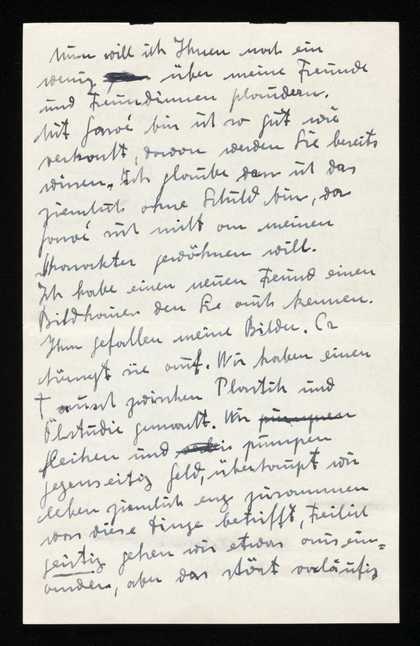 Nun will ich Ihnen noch ein
wenig über meine Freunde
und Freundinnen plaudern.
Mit bin ich so gut wie
verkracht, davon werden Sie bereits
wissen. Ich glaube dass ich das
ziemlich ohne Schuld bin, da
sich nicht an meinen
Charakter gewöhnen will.
Ich habe einen neuen Freund einen
Bildhauer den Sie auch kennen.
Ihm gefallen meine Bilder. Er
hängt sie auf. Wir haben einen
Tausch zwischen Plastik und
Ölstudie gemacht. Wir pumpen
leihen und pumpen
gegenseitig Geld, überhaupt wir
leben ziemlich eng zusammen
was diese Dinge betrifft, freilich
geistig gehen wir etwas ausein=
ander, aber das stört vorläufig